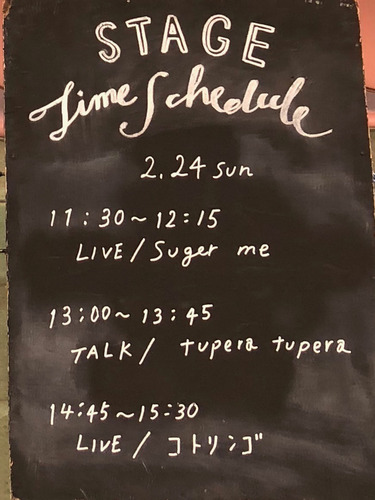 STAGE
Time Schedule
2.24 sun
11:30~12:15
LIVE/Suger me
13:00~13:45
TALK/ tupera tupera
14:45~15:30
LIVE/コトリンゴ